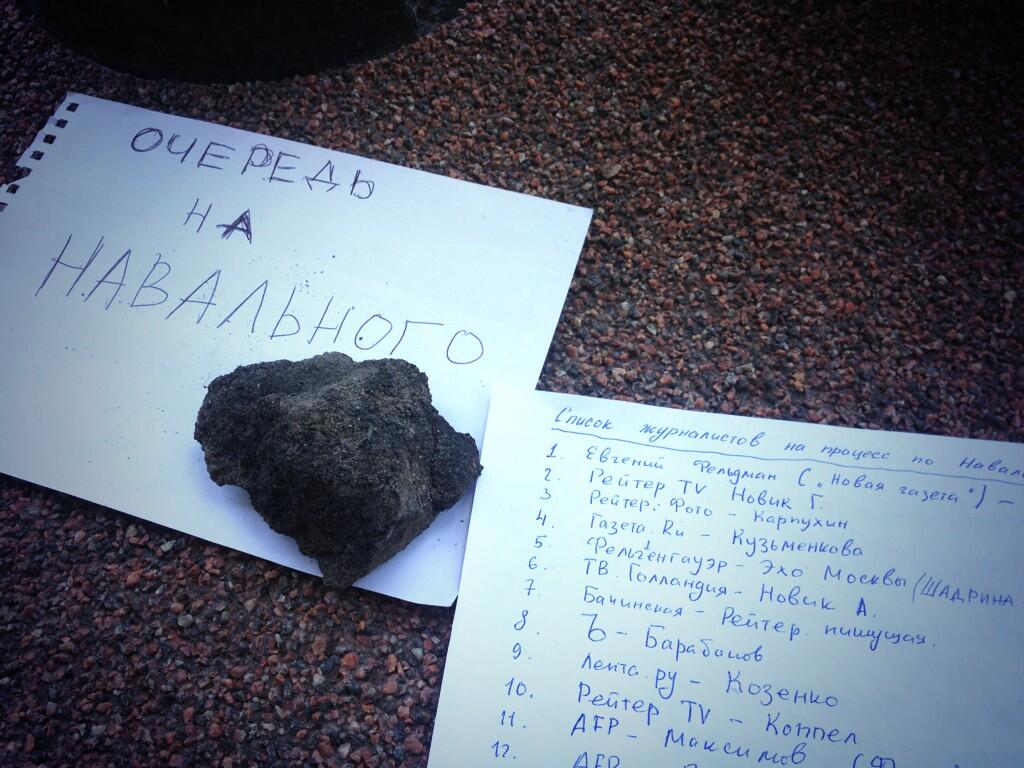 ОЧЕРЕДЬ
НА
НАВАЛЬНОГО
Список журналистов на процесс по Навал
1. Евгений Фельдман ("Новая газета") –
2. Рейтер TV Новик Г.
3. Рейтер. Фото – Карпухин
4. Газета.Ru – Кузьменкова
5. Фельгенгауэр – Эхо Москвы (ШАДРИНА
6. ТВ. Голландия – Новик А.
7. Бачинская – Рейтер. пишущая.
8. Ъ – Барабанов
9. Лента.ру – Козенко
10. Рейтер TV – Коппел
11. AFP – Максимов
12. AFP –